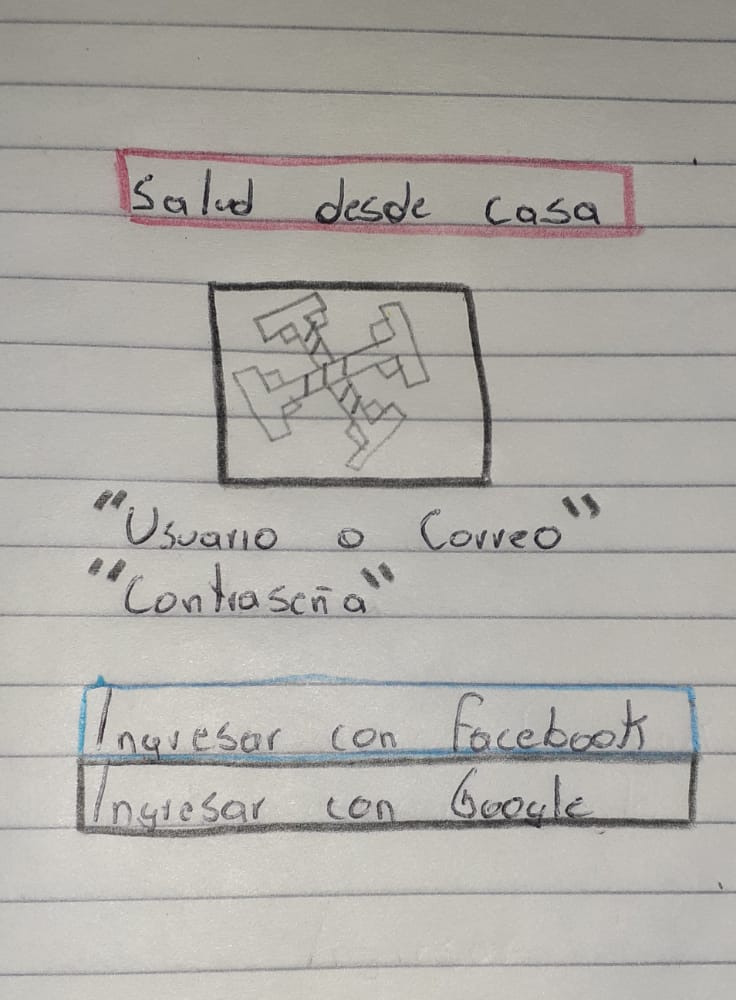 Salud desde casa
"Usuario o Correo"
"Contraseña"
Ingresar con Facebook
Ingresar con Google